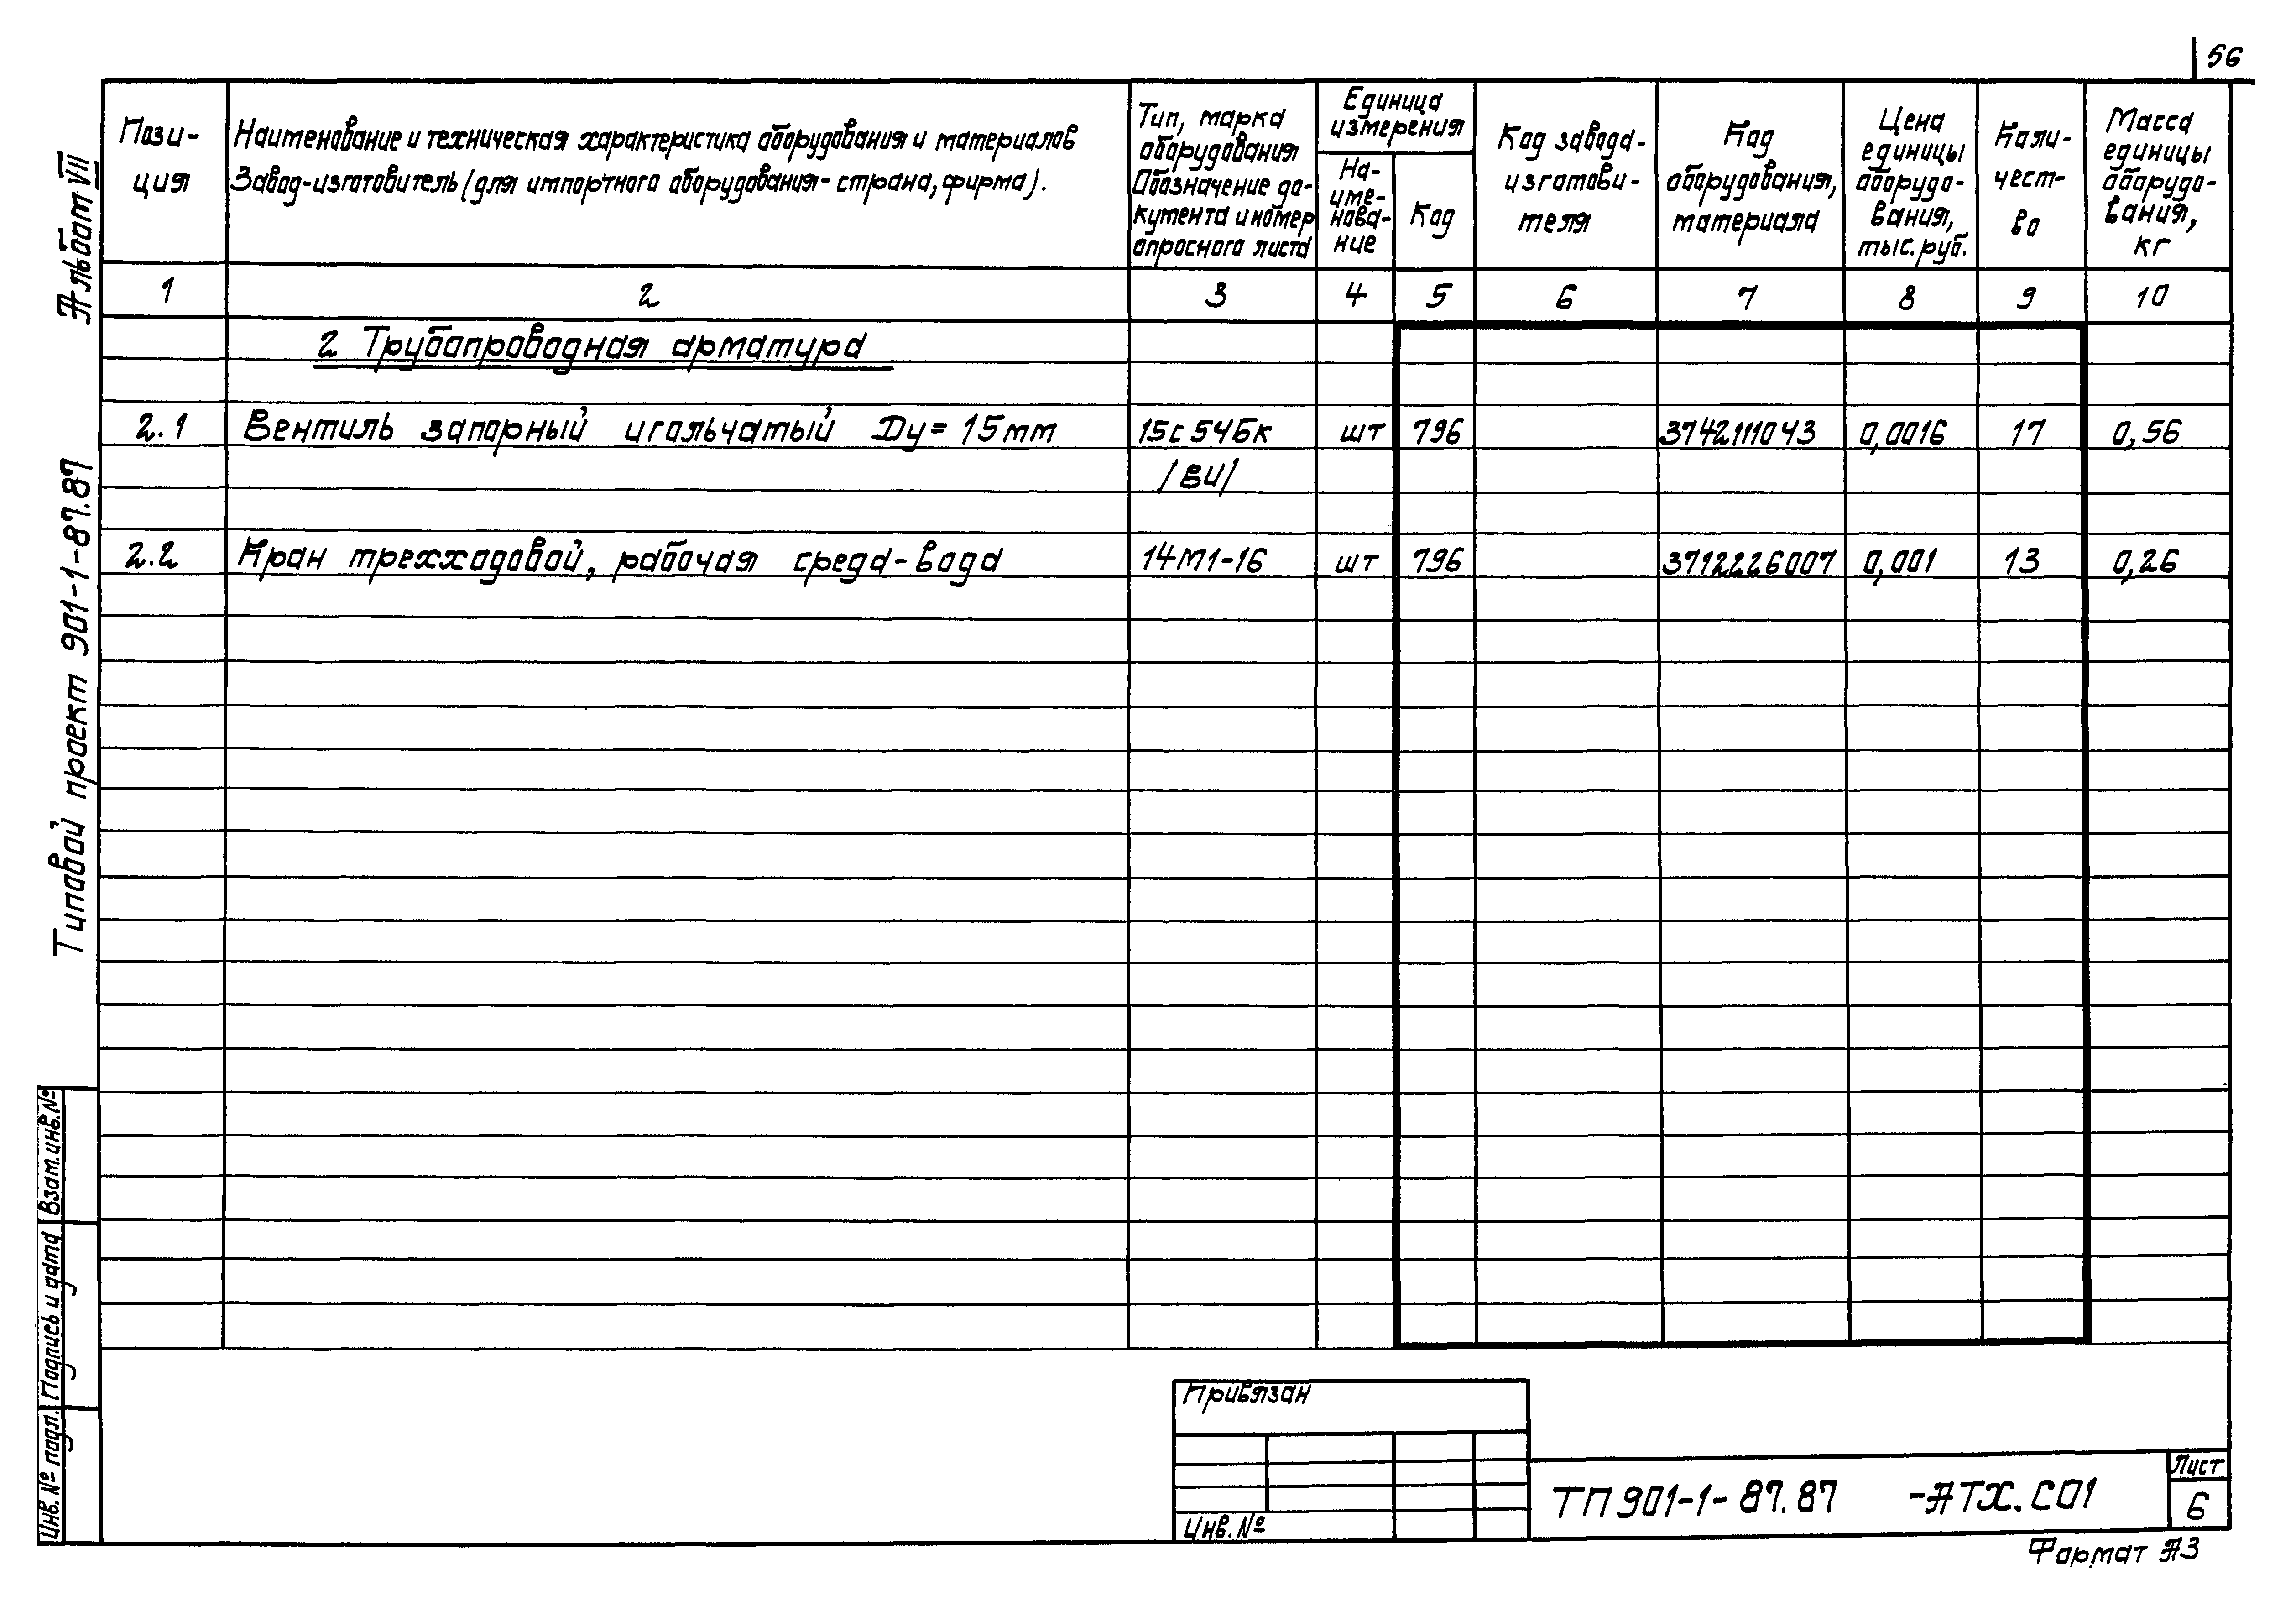 56
Альбом VII
Типовой проект 901-1-87.87
Пози-
ция
Наименование и техническая характеристика оборудования и материалов
Завод-изготовитель (для импортного оборудования - страна, фирма).
Тип, марка
оборудования
Обозначение до-
кумента и номер
опросного листа
Единица
измерения
На-
име-
нова-
ние
Код
Код завода-
изготови-
теля
Код
оборудования,
материала
Цена
единицы
оборудо-
вания,
тыс. руб.
Коли-
чест-
во
Масса
единицы
оборудо-
вания,
кг
1 2 3 4 5 6 7 8 9 10
2 Трубопроводная арматура
2.1 Вентиль запорный игольчатый Ду = 15 мм 15с 54бк шт 796 3742111043 0,0016 17 0,56
/ВИ/
2.2 Кран трехходовой, рабочая среда - вода 14М1-16 шт 796 3712226007 0,001 13 0,26
Взам. инв. №
Подпись и дата
Инв. № подл.
Привязан
Инв. №
ТП 901-1-87.87 -АТХ.СО1
Лист
6
Формат А3